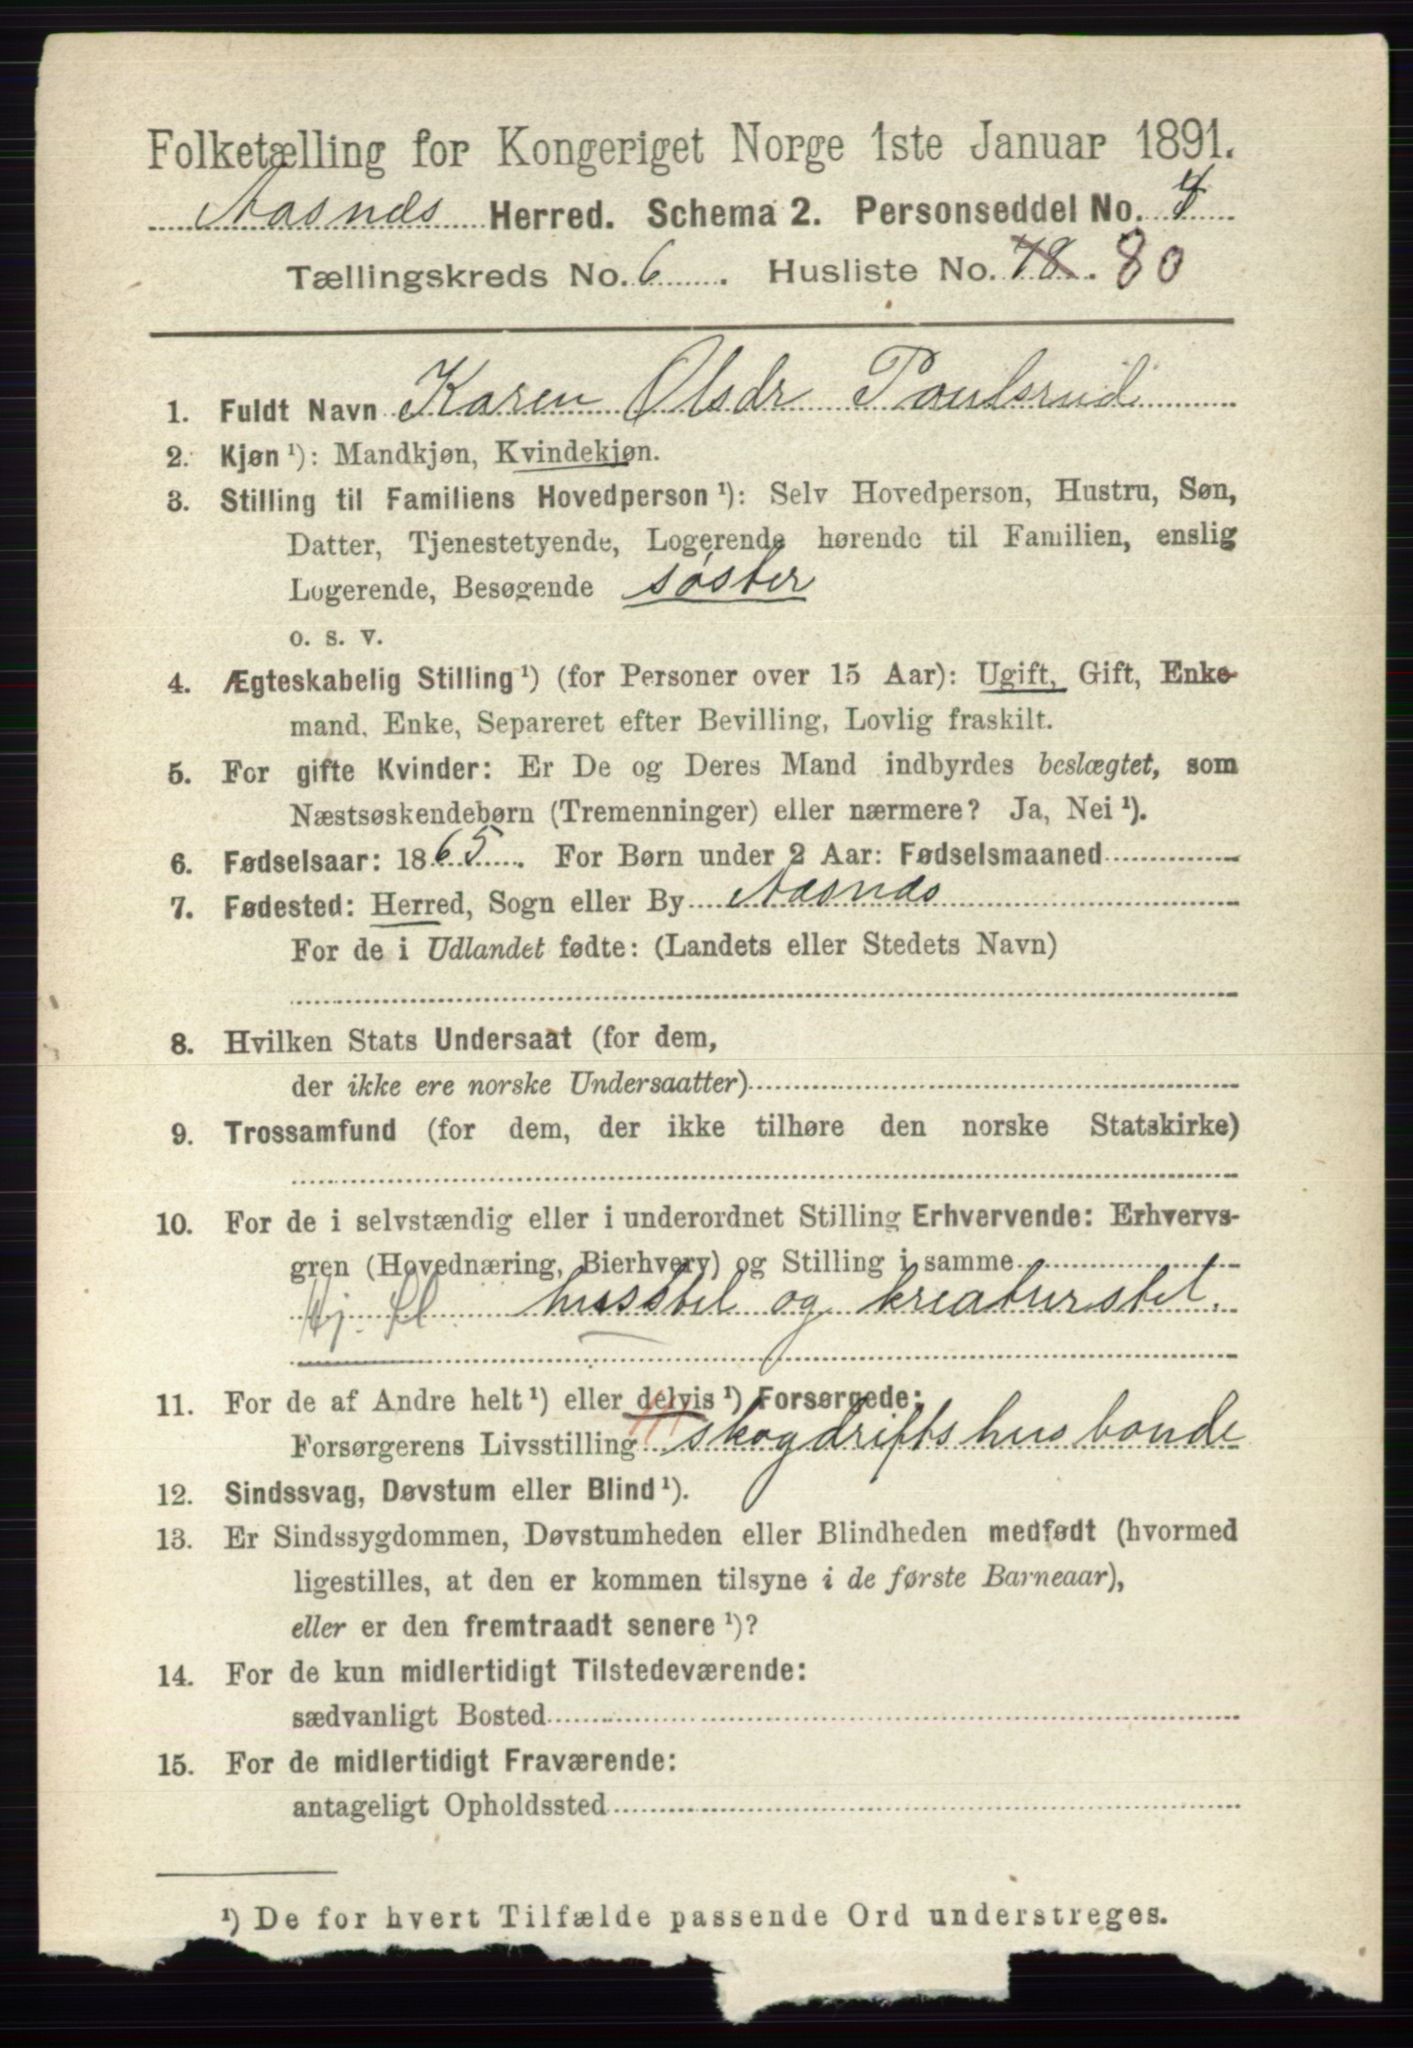 Folketælling for Kongeriget Norge 1ste Januar 1891.
Aasnes Herred. Schema 2. Personseddel No. 4
Tællingskreds No. 6. Husliste No. 78. 80
1. Fuldt Navn Karen Olsdr Paulsrud
2. Kjøn ¹): Mandkjøn, Kvindekjøn.
3. Stilling til Familiens Hovedperson ¹): Selv Hovedperson, Hustru, Søn,
Datter, Tjenestetyende, Logerende hørende til Familien, enslig
Logerende, Besøgende søster
o. s. v.
4. Ægteskabelig Stilling ¹) (for Personer over 15 Aar): Ugift, Gift, Enke-
mand, Enke, Separeret efter Bevilling, Lovlig fraskilt.
5. For gifte Kvinder: Er De og Deres Mand indbyrdes beslægtet, som
Næstsøskendebørn (Tremenninger) eller nærmere? Ja, Nei ¹).
6. Fødselsaar: 1865. For Børn under 2 Aar: Fødselsmaaned
7. Fødested: Herred, Sogn eller By Aasnes
For de i Udlandet fødte: (Landets eller Stedets Navn)
8. Hvilken Stats Undersaat (for dem,
der ikke ere norske Undersaatter)
9. Trossamfund (for dem, der ikke tilhøre den norske Statskirke)
10. For de i selvstændig eller i underordnet Stilling Erhvervende: Erhvervs-
gren (Hovednæring, Bierhverv) og Stilling i samme
husstel og kreaturstel.
11. For de af Andre helt ¹) eller delvis ¹) Forsørgede:
Forsørgerens Livsstilling skogdriftshusbonde
12. Sindssvag, Døvstum eller Blind ¹).
13. Er Sindssygdommen, Døvstumheden eller Blindheden medfødt (hvormed
ligestilles, at den er kommen tilsyne i de første Barneaar),
eller er den fremtraadt senere ¹)?
14. For de kun midlertidigt Tilstedeværende:
sædvanligt Bosted
15. For de midlertidigt Fraværende:
antageligt Opholdssted
¹) De for hvert Tilfælde passende Ord understreges.